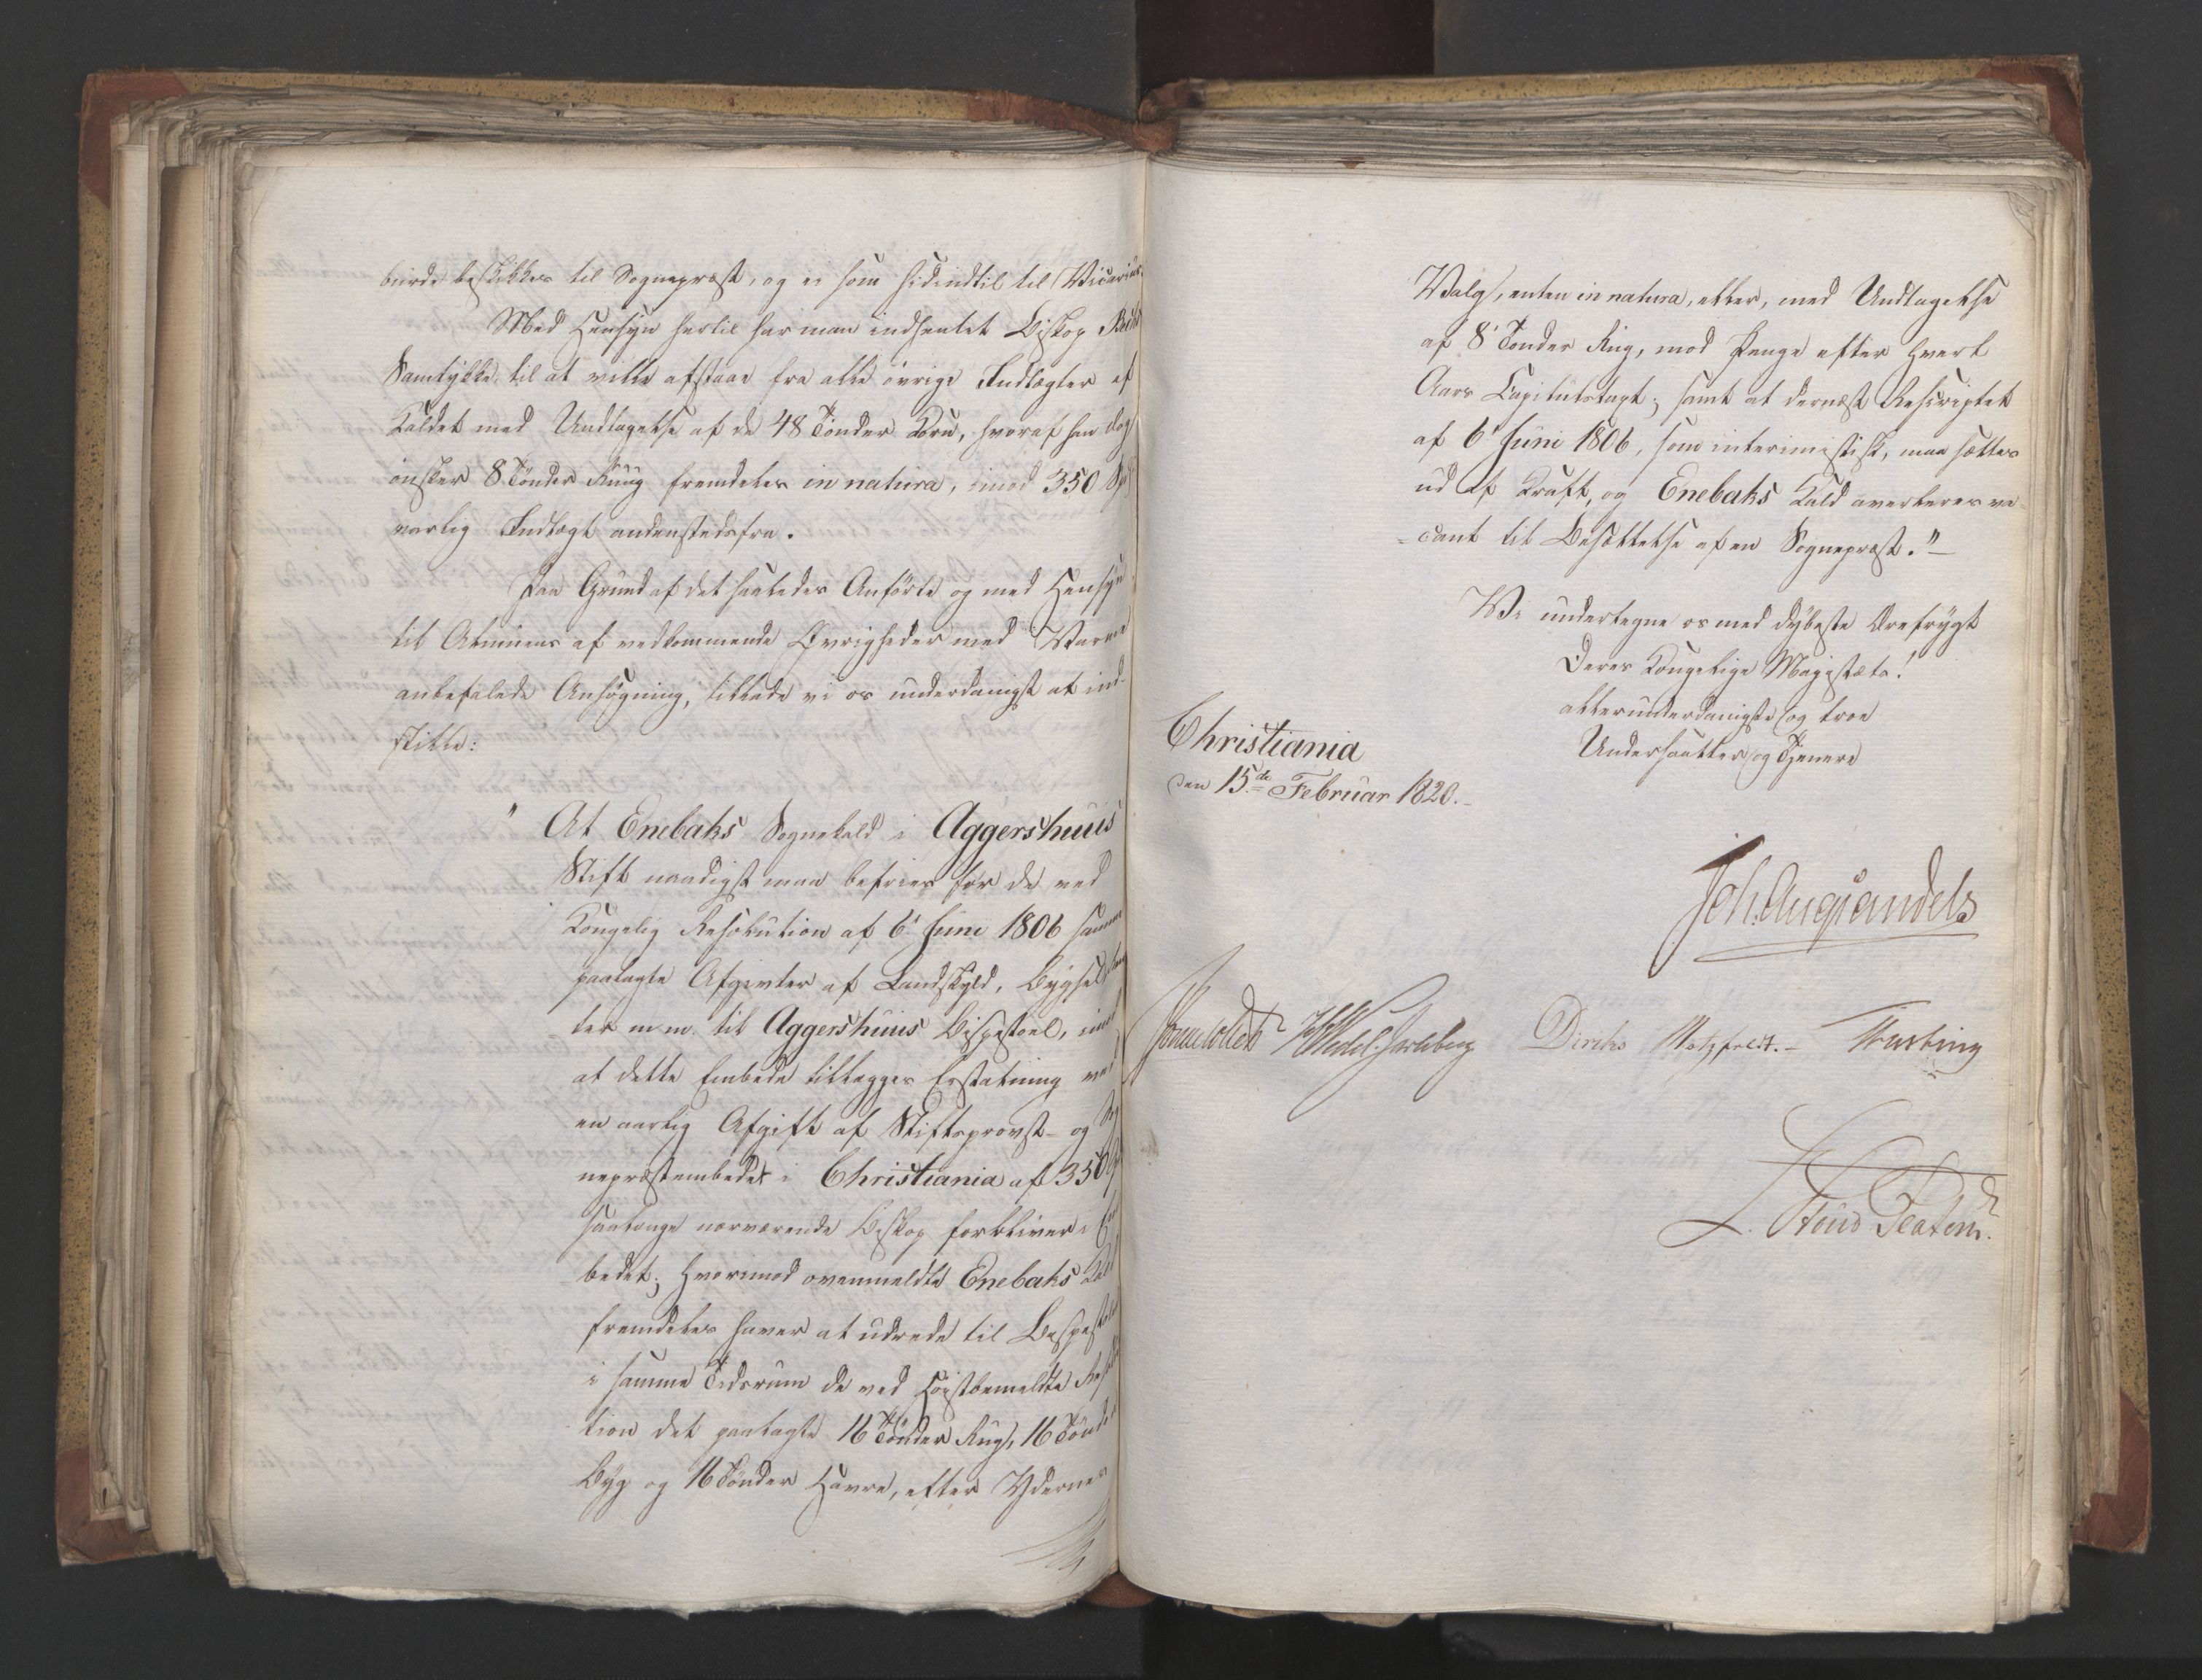 burde beskikkes til Sognepræst, og ei som hidindtil til Vicarius.
Med Hensyn hertil har man indhentet Biskop Bechs
Samtykke til at ville afstaae fra alle övrige Indtægter af
Kaldet med Undtagelse af de 48 Tönder Korn, hvoraf han dog
önsker 8 Tönder Ruug fremdeles in natura, imod 350 Spd
aarlig Indtægt andenstedsfra.
Paa Grund af det saaledes Anförte og med Hensyn
til Almuens af vedkommende Övrigheder med Varme
anbefalede Ansögning, tillade vi os underdanigst at ind-
stille:
" At Enebaks Sognekald i Aggershuus
Stift naadigst maa befries for de ved
Kongelig Resolution af 6' Juni 1806 samme
paalagte Afgivter af Landskyld, Bygsel
ter m.m. til Aggershuus Bispestoel, imod
at dette Embede tillægges Erstatning ved
en aarlig Afgift af Stiftsprovst- og Sog
nepræstembedet i Christiania af 350
saalænge nærværende Biskop forbliver i Em
bedet; hvorimod ovenmeldte Enebaks Kald
fremdeles haver at udrede til Bispestolen
i samme Tidsrum de ved Höistbemeldte Resolu
tion det paalagte 16 Tönder Rug, 16 Tönder
Byg og 16 Tönder Havre, efter Ydernes
Valg, enten in natura, eller, med Undtagelse
af 8' Tonder Rug, mod Penge efter hvert
Aars Capitulstaxt; samt at dernæst Rescriptet
af 6' Juni 1806, som interimistisk, maa sættes
ud af Kraft, og Enebaks Kald averteres va-
=cant til Besættelse af en Sognepræst."
Vi undertegne os med dybeste Ærefrygt
Deres Kongelige Majestæts!
allerunderdanigste og troe
Undersaatter og Tjenere
Christiania
den 15de Februar 1820.
Joh. Aug Sandels
Jonas Collett HWedel Jarlsberg Diriks Motzfeldt. Fasting
L. Stoud Platou